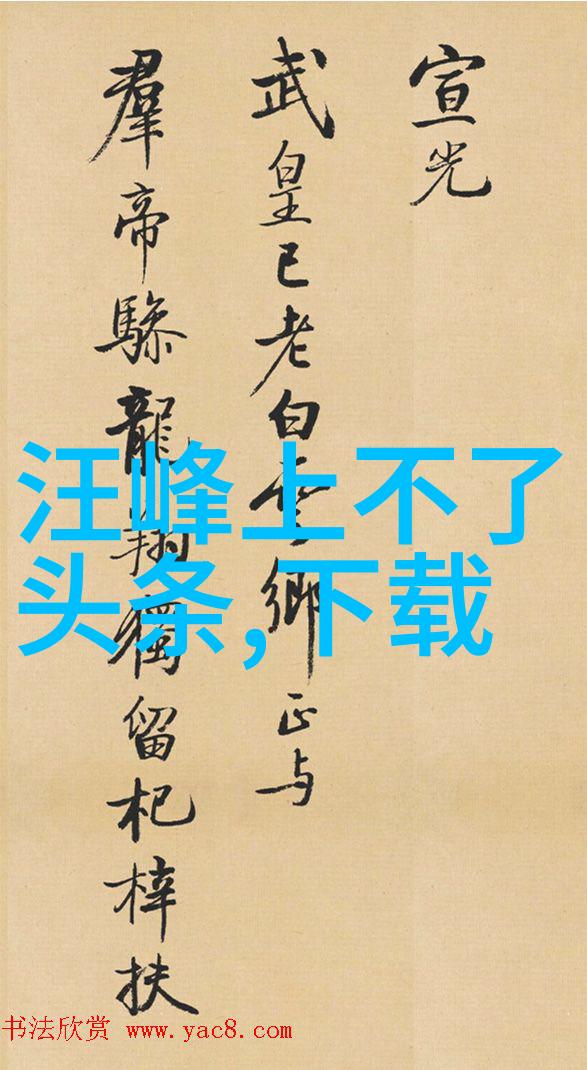 宣光
武皇已老白雲鄉正与
羣帝驂龍翔獨留杞梓扶
汪峰上不了
头条,下载
书法欣赏 www.yac8.com